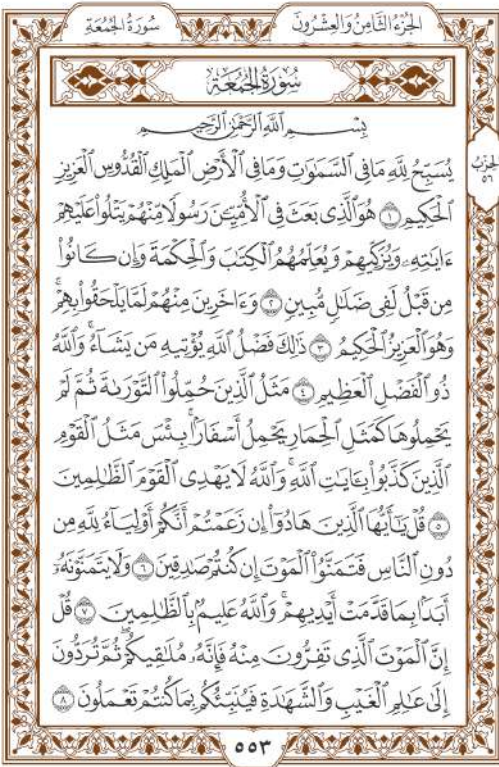 الجُزْءُ الثَّامِنُ وَالعِشْرُونَ
سُورَةُ الجُمُعَةِ
سُورَةُ الجُمُعَةِ
بِسْمِ ٱللَّهِ ٱلرَّحْمَٰنِ ٱلرَّحِيمِ
الحِزْبُ
٥٦
يُسَبِّحُ لِلَّهِ مَا فِي ٱلسَّمَٰوَٰتِ وَمَا فِي ٱلْأَرْضِ ٱلْمَلِكِ ٱلْقُدُّوسِ ٱلْعَزِيزِ
ٱلْحَكِيمِ ١ هُوَ ٱلَّذِي بَعَثَ فِي ٱلْأُمِّيِّـۧنَ رَسُولًا مِّنْهُمْ يَتْلُوا۟ عَلَيْهِمْ
ءَايَٰتِهِۦ وَيُزَكِّيهِمْ وَيُعَلِّمُهُمُ ٱلْكِتَٰبَ وَٱلْحِكْمَةَ وَإِن كَانُوا۟
مِن قَبْلُ لَفِي ضَلَٰلٍ مُّبِينٍ ٢ وَءَاخَرِينَ مِنْهُمْ لَمَّا يَلْحَقُوا۟ بِهِمْ ۚ
وَهُوَ ٱلْعَزِيزُ ٱلْحَكِيمُ ٣ ذَٰلِكَ فَضْلُ ٱللَّهِ يُؤْتِيهِ مَن يَشَآءُ ۚ وَٱللَّهُ
ذُو ٱلْفَضْلِ ٱلْعَظِيمِ ٤ مَثَلُ ٱلَّذِينَ حُمِّلُوا۟ ٱلتَّوْرَىٰةَ ثُمَّ لَمْ
يَحْمِلُوهَا كَمَثَلِ ٱلْحِمَارِ يَحْمِلُ أَسْفَارًۢا ۚ بِئْسَ مَثَلُ ٱلْقَوْمِ
ٱلَّذِينَ كَذَّبُوا۟ بِـَٔايَٰتِ ٱللَّهِ ۚ وَٱللَّهُ لَا يَهْدِي ٱلْقَوْمَ ٱلظَّٰلِمِينَ
٥ قُلْ يَٰٓأَيُّهَا ٱلَّذِينَ هَادُوٓا۟ إِن زَعَمْتُمْ أَنَّكُمْ أَوْلِيَآءُ لِلَّهِ مِن
دُونِ ٱلنَّاسِ فَتَمَنَّوُا۟ ٱلْمَوْتَ إِن كُنتُمْ صَٰدِقِينَ ٦ وَلَا يَتَمَنَّوْنَهُۥٓ
أَبَدًۢا بِمَا قَدَّمَتْ أَيْدِيهِمْ ۚ وَٱللَّهُ عَلِيمٌۢ بِٱلظَّٰلِمِينَ ٧ قُلْ
إِنَّ ٱلْمَوْتَ ٱلَّذِي تَفِرُّونَ مِنْهُ فَإِنَّهُۥ مُلَٰقِيكُمْ ۖ ثُمَّ تُرَدُّونَ
إِلَىٰ عَٰلِمِ ٱلْغَيْبِ وَٱلشَّهَٰدَةِ فَيُنَبِّئُكُم بِمَا كُنتُمْ تَعْمَلُونَ ٨
٥٥٣